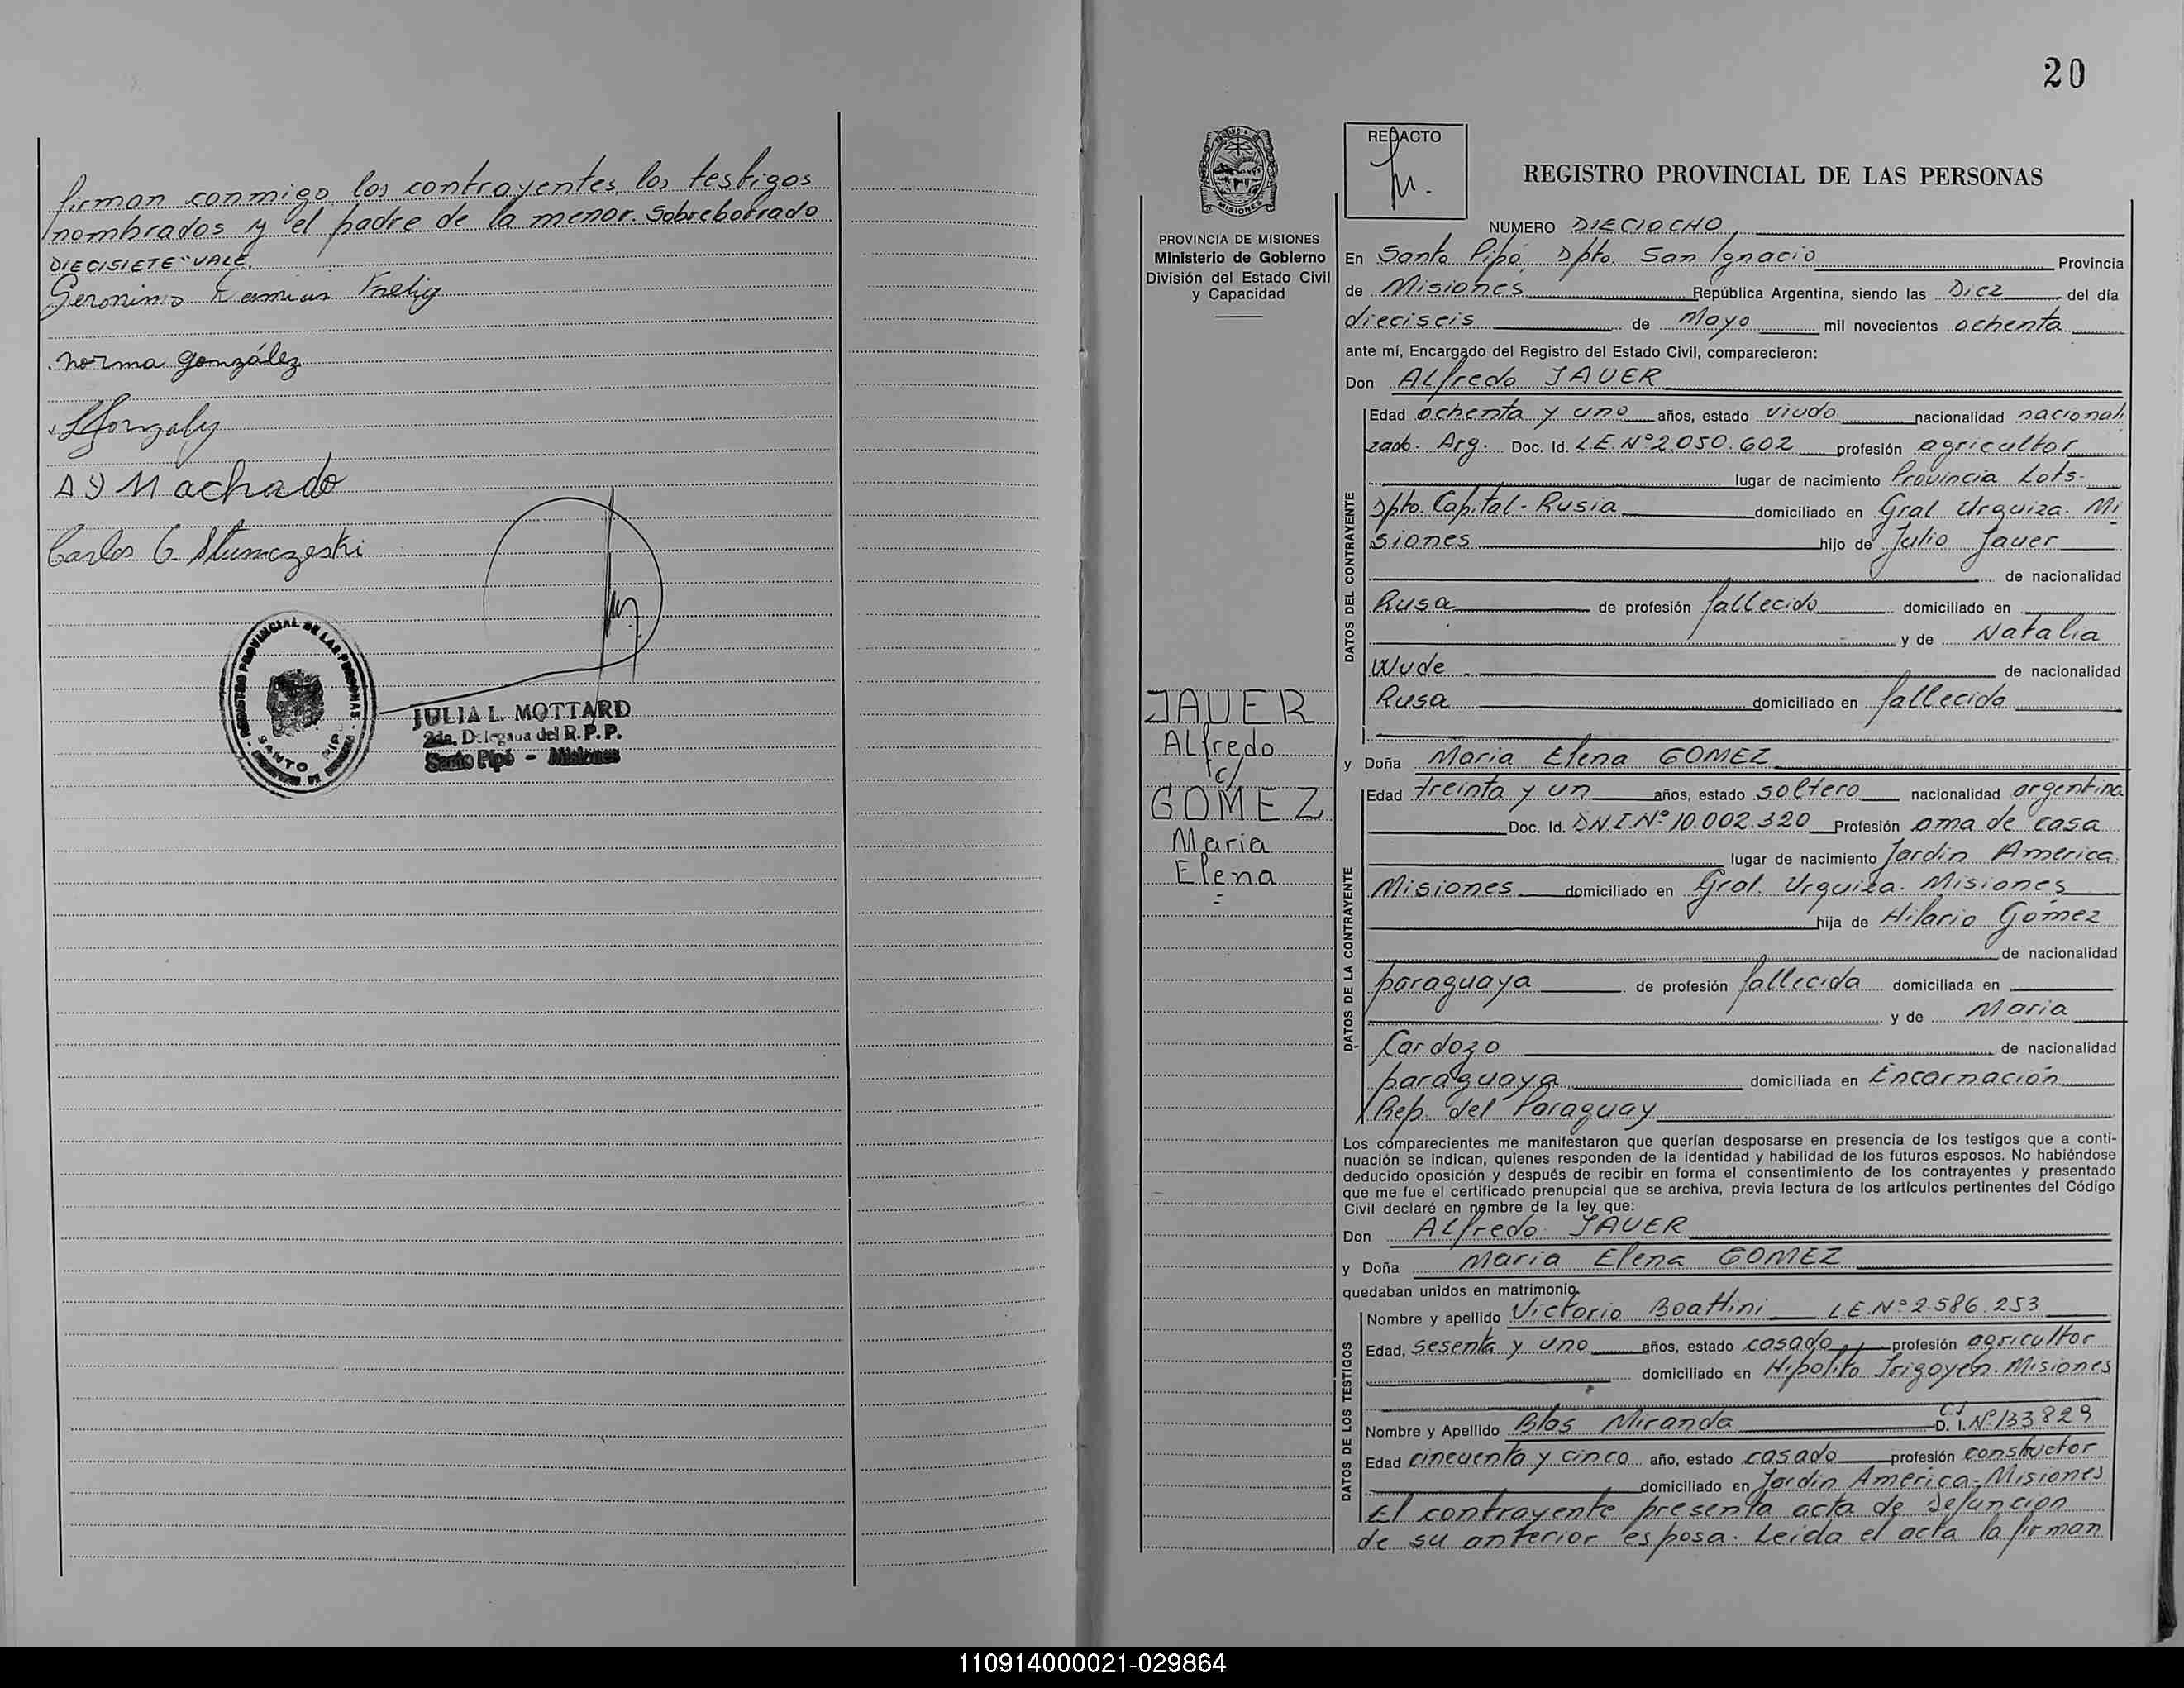 firman conmigo los contrayentes, los testigos
nombrados y el padre de la menor. Sobreborrado
DIECISIETE "VALE.
Geronimo Damian
norma gonzález
A Y Machado
Carlos G.
REGISTRO PROVINCIAL DE LAS PERSONAS
SANTO PIPO
JULIA L. MOTTARD
2da. Delegada del R.P.P.
Santo Pipó - Misiones
20
PROVINCIA DE MISIONES
Ministerio de Gobierno
División del Estado Civil
y Capacidad
JAUER
Alfredo
c/
GOMEZ
Maria
Elena
=
REDACTO
REGISTRO PROVINCIAL DE LAS PERSONAS
NUMERO DIECIOCHO
En Santo Pipó, Dpto. San Ignacio Provincia
de Misiones República Argentina, siendo las Diez del día
dieciseis de Mayo mil novecientos ochenta
ante mí, Encargado del Registro del Estado Civil, comparecieron:
Don Alfredo JAUER
DATOS DEL CONTRAYENTE
Edad ochenta y uno años, estado viudo nacionalidad nacionali
zado. Arg. Doc. Id. L.E. Nº 2.050.602 profesión agricultor
lugar de nacimiento Provincia Lots-
Dpto. Capital - Rusia domiciliado en Gral Urquiza. Mi
siones hijo de Julio Jauer
de nacionalidad
Rusa de profesión fallecido domiciliado en
y de Natalia
Wude de nacionalidad
Rusa domiciliado en fallecida
y Doña Maria Elena GOMEZ
DATOS DE LA CONTRAYENTE
Edad treinta y un años, estado soltero nacionalidad argentina
Doc. Id. D.N.I. Nº 10.002.320 Profesión ama de casa
lugar de nacimiento Jardin America
Misiones domiciliado en Gral. Urquiza. Misiones
hija de Hilario Gómez
de nacionalidad
paraguaya de profesión fallecida domiciliada en
y de Maria
Cardozo de nacionalidad
paraguaya domiciliada en Encarnación
Rep. del Paraguay
Los comparecientes me manifestaron que querían desposarse en presencia de los testigos que a conti-
nuación se indican, quienes responden de la identidad y habilidad de los futuros esposos. No habiéndose
deducido oposición y después de recibir en forma el consentimiento de los contrayentes y presentado
que me fue el certificado prenupcial que se archiva, previa lectura de los artículos pertinentes del Código
Civil declaré en nombre de la ley que:
Don Alfredo JAUER
y Doña Maria Elena GOMEZ
quedaban unidos en matrimonio.
DATOS DE LOS TESTIGOS
Nombre y apellido Victorio Boattini L.E. Nº 2.586.253
Edad, sesenta y uno años, estado casado profesión agricultor
domiciliado en Hipolito Irigoyen. Misiones
Nombre y Apellido Blas Miranda C.I. D. I. Nº 133829
Edad cincuenta y cinco año, estado casado profesión constuctor
domiciliado en Jardin America - Misiones
El contrayente presenta acta de defuncion
de su anterior esposa. Leida el acta la firman
110914000021-029864